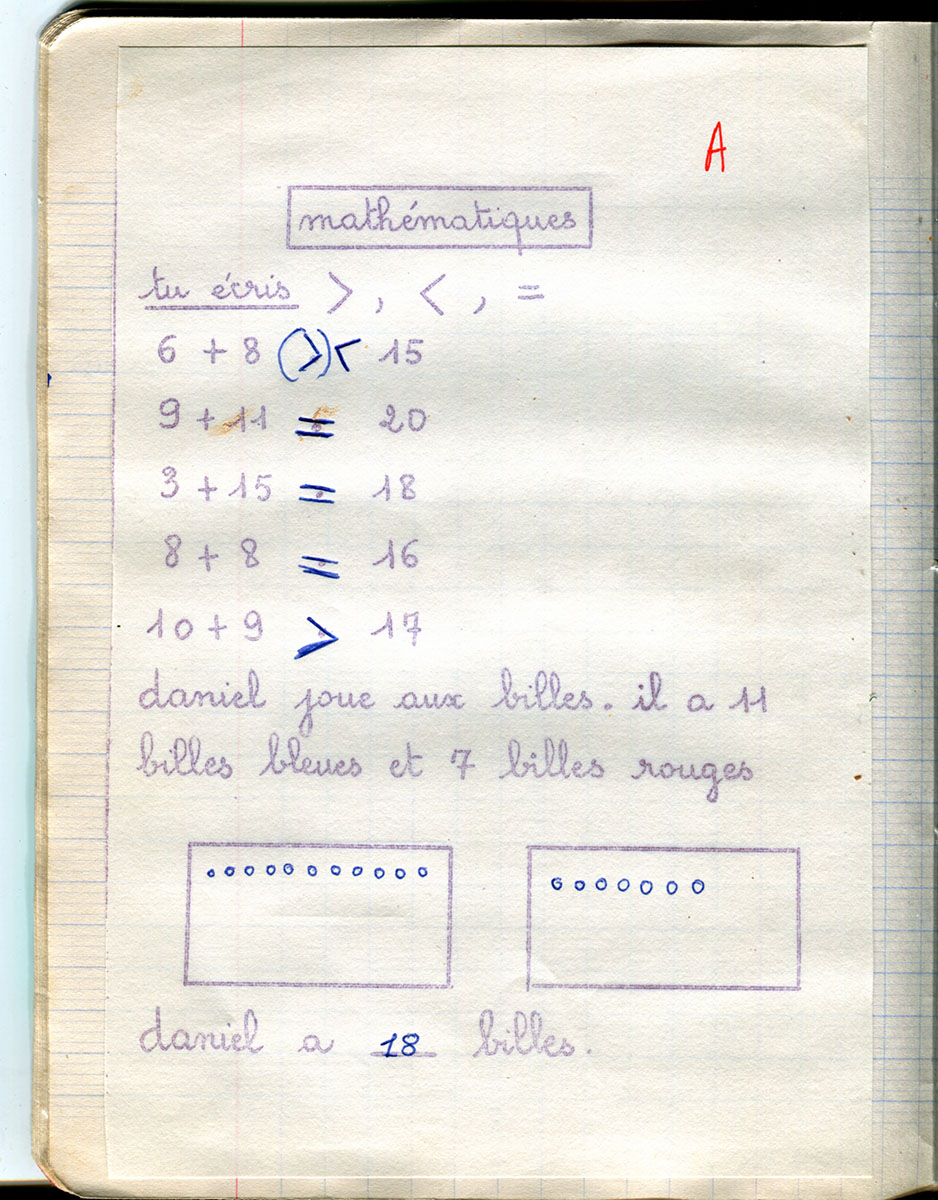 A
mathématiques
tu écris >, <, =
6 + 8 (>) < 15
9 + 11 = 20
3 + 15 = 18
8 + 8 = 16
10 + 9 > 17
daniel joue aux billes. il a 11
billes bleues et 7 billes rouges
daniel a 18 billes.